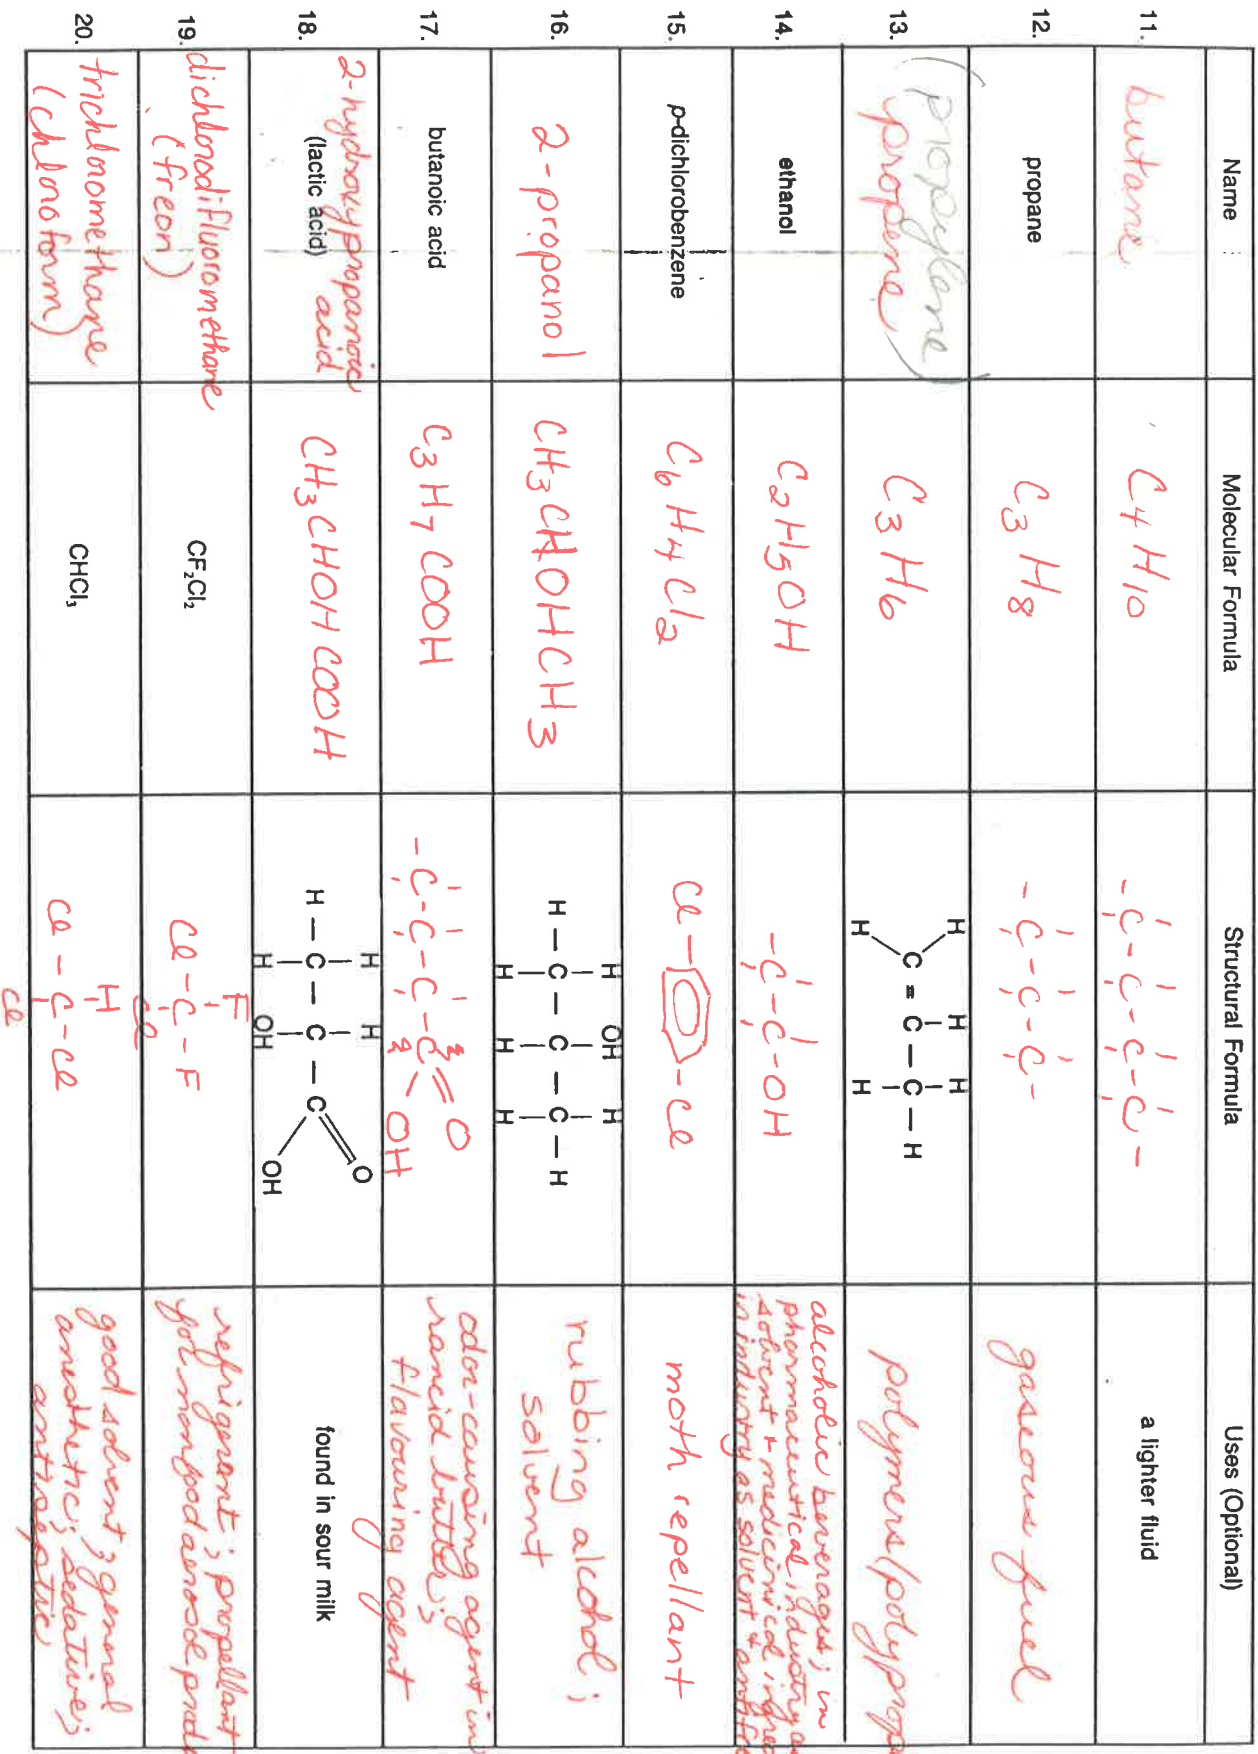 Name Molecular Formula Structural Formula Uses (Optional)
11. butane C4H10 -C-C-C-C- a lighter fluid
12. propane C3H8 -C-C-C- gaseous fuel
13. (propylene)
propene C3H6
H H H
C = C — C — H
H H
polymers/polyprop
14. ethanol C2H5OH -C-C-OH
alcoholic beverages; in
pharmaceutical industry as
solvent + medicinal ingred
in industry as solvent + antifre
15. p-dichlorobenzene C6H4Cl2 Cl- -Cl moth repellant
16. 2-propanol CH3CHOHCH3
H OH H
H — C — C — C — H
H H H
rubbing alcohol;
solvent
17. butanoic acid C3H7COOH
-C-C-C-C=O
OH
odor-causing agent in
rancid butter;
flavouring agent
18. 2-hydroxypropanoic
acid
(lactic acid) CH3CHOHCOOH
H H O
H — C — C — C
H OH OH
found in sour milk
19. dichlorodifluoromethane
(freon) CF₂Cl₂
F
Cl-C-F
Cl
refrigerant; propellant
for nonfood aerosol produ
20. trichloromethane
(chloroform) CHCl₃
H
Cl-C-Cl
Cl
good solvent; general
anesthetic; sedative;
antiseptic